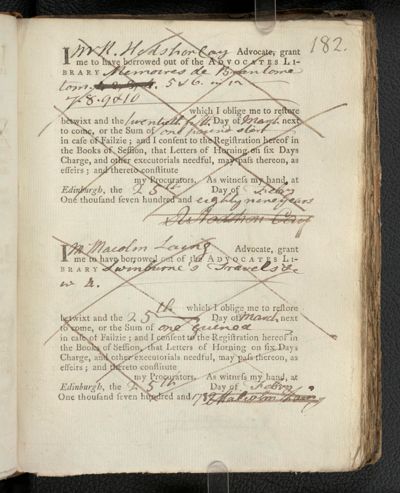 182.
I Mr R. Hodshon Cay Advocate, grant
me to have borrowed out of the ADVOCATES LI-
BRARY Memoires de Brantome
tom 5 & 6. in 12
7. 8. 9 & 10
which I oblige me to restore
betwixt and the twentieth fifth Day of March next
to come, or the Sum of one pound sterl
in case of Failzie; and I consent to the Registration hereof in
the Books of Session, that Letters of Horning on six Days
Charge, and other executorials needful, may pass thereon, as
effeirs; and thereto constitute
my Procurators. As witness my hand, at
Edinburgh, the 25th Day of Febry
One thousand seven hundred and eighty nine years
R. Hodshon Cay
I Mr Malcolm Laing Advocate, grant
me to have borrowed out of the ADVOCATES LI-
BRARY Swinburne's Travels
which I oblige me to restore
betwixt and the 25th Day of March next
to come, or the Sum of one guinea
in case of Failzie; and I consent to the Registration hereof in
the Books of Session, that Letters of Horning on six Days
Charge, and other executorials needful, may pass thereon, as
effeirs; and thereto constitute
my Procurators. As witness my hand, at
Edinburgh, the 25th Day of Febry
One thousand seven hundred and 1789 Malcolm Laing